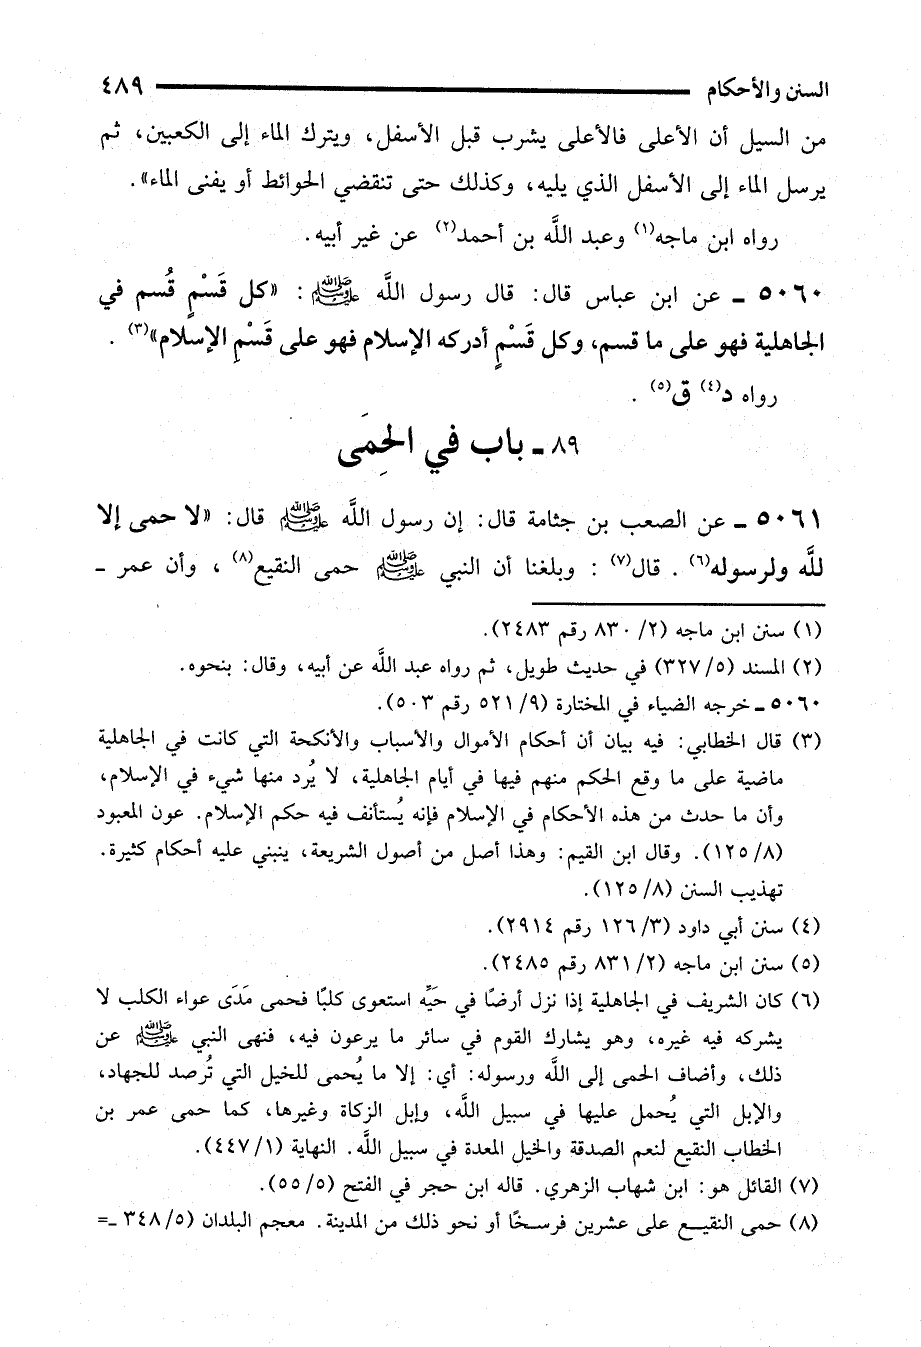 السنن والأحكام ٤٨٩
من السيل أن الأعلى فالأعلى يشرب قبل الأسفل، ويترك الماء إلى الكعبين، ثم
يرسل الماء إلى الأسفل الذي يليه، وكذلك حتى تنقضي الحوائط أو يفنى الماء».
رواه ابن ماجه(١) وعبد اللَّه بن أحمد(٢) عن غير أبيه.
٥٠٦٠ ـ عن ابن عباس قال: قال رسول اللَّه ﷺ: «كل قَسْمٍ قُسم في
الجاهلية فهو على ما قسم، وكل قَسْمٍ أدركه الإسلام فهو على قَسْمِ الإسلام»(٣).
رواه د(٤) ق(٥).
٨٩ ـ باب في الحِمَى
٥٠٦١ ـ عن الصعب بن جثامة قال: إن رسول اللَّه ﷺ قال: «لا حمى إلا
للَّه ولرسوله(٦). قال(٧): وبلغنا أن النبي ﷺ حمى النقيع(٨)، وأن عمر ـ
(١) سنن ابن ماجه (٢/ ٨٣٠ رقم ٢٤٨٣).
(٢) المسند (٥/ ٣٢٧) في حديث طويل، ثم رواه عبد اللَّه عن أبيه، وقال: بنحوه.
٥٠٦٠ ـ خرجه الضياء في المختارة (٩/ ٥٢١ رقم ٥٠٣).
(٣) قال الخطابي: فيه بيان أن أحكام الأموال والأسباب والأنكحة التي كانت في الجاهلية
ماضية على ما وقع الحكم منهم فيها في أيام الجاهلية، لا يُرد منها شيء في الإسلام،
وأن ما حدث من هذه الأحكام في الإسلام فإنه يُستأنف فيه حكم الإسلام. عون المعبود
(٨/ ١٢٥). وقال ابن القيم: وهذا أصل من أصول الشريعة، ينبني عليه أحكام كثيرة.
تهذيب السنن (٨/ ١٢٥).
(٤) سنن أبي داود (٣/ ١٢٦ رقم ٢٩١٤).
(٥) سنن ابن ماجه (٢/ ٨٣١ رقم ٢٤٨٥).
(٦) كان الشريف في الجاهلية إذا نزل أرضًا في حَيِّه استعوى كلبًا فحمى مَدَى عواء الكلب لا
يشركه فيه غيره، وهو يشارك القوم في سائر ما يرعون فيه، فنهى النبي ﷺ عن
ذلك، وأضاف الحمى إلى اللَّه ورسوله: أي: إلا ما يُحمى للخيل التي تُرصد للجهاد،
والإبل التي يُحمل عليها في سبيل اللَّه، وإبل الزكاة وغيرها، كما حمى عمر بن
الخطاب النقيع لنعم الصدقة والخيل المعدة في سبيل اللَّه. النهاية (١/ ٤٤٧).
(٧) القائل هو: ابن شهاب الزهري. قاله ابن حجر في الفتح (٥/ ٥٥).
(٨) حمى النقيـع على عشرين فرسـخًا أو نحو ذلك من المدينة. معجم البلدان (٥/ ٣٤٨ ـ=